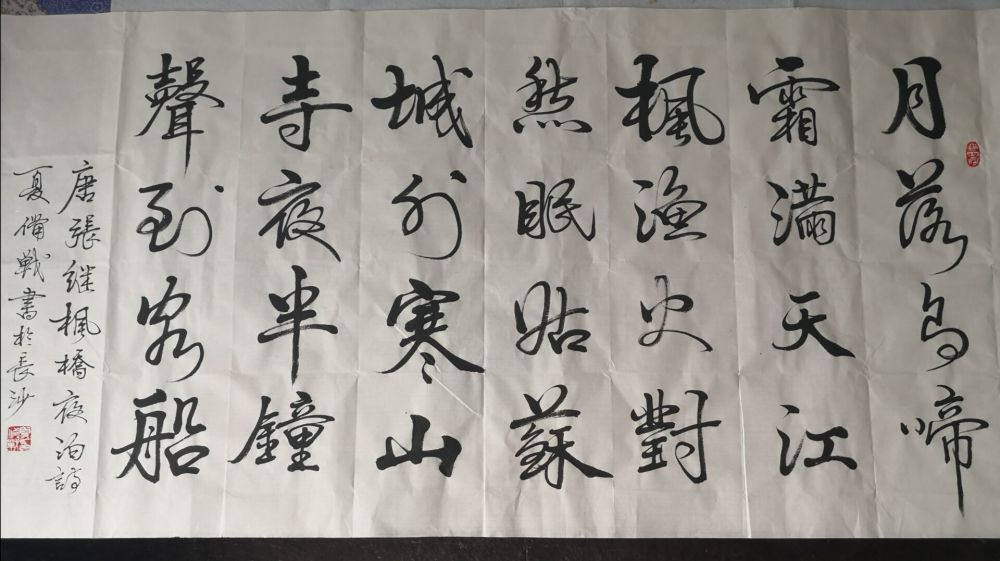 月落烏啼
霜滿天江
楓漁火對
愁眠姑蘇
城外寒山
寺夜半鐘
聲到客船
唐張继楓橋夜泊詩
夏備戰書於長沙